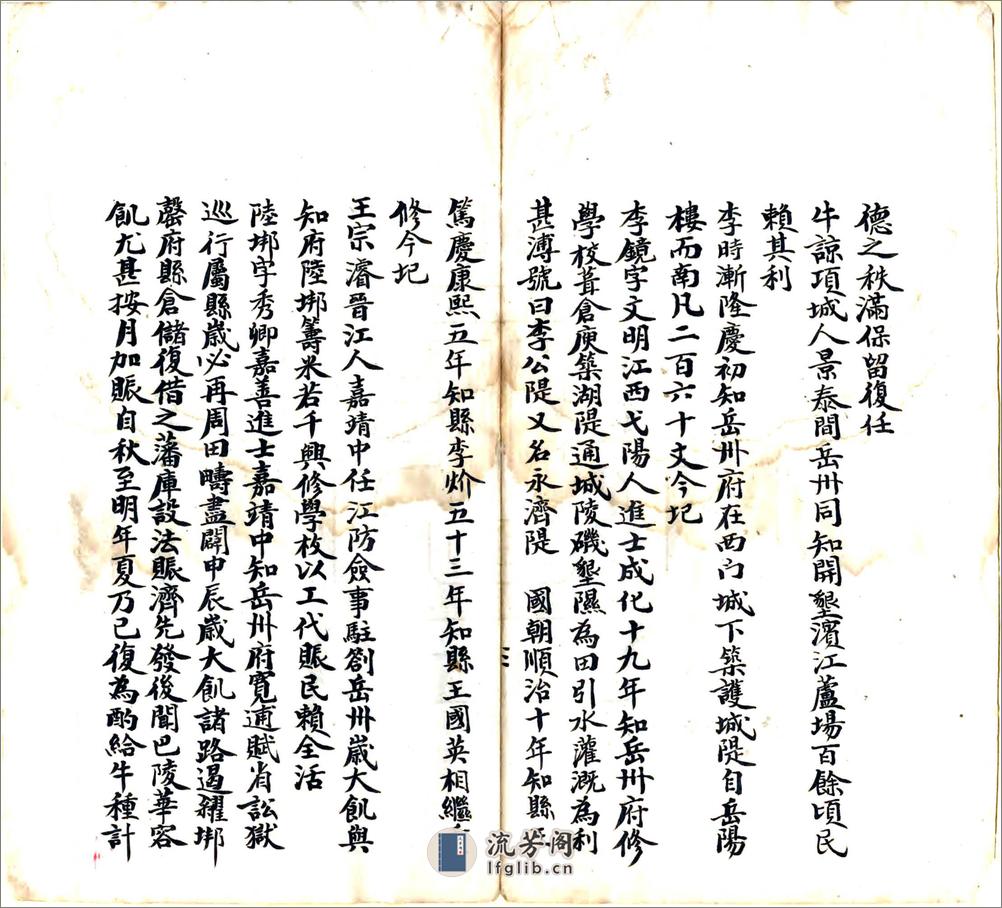 德之秩滿保留復任
牛諒項城人景泰間岳州同知開墾濱江蘆場百餘頃民
賴其利
李時漸隆慶初知岳州府在西門城下築護城隄自岳陽
樓而南凡二百六十丈今圮
李鏡字文明江西弋陽人進士成化十九年知岳州府修
學校葺倉庾築湖隄通城陵磯墾隰為田引水灌溉為利
甚溥號曰李公隄又名永濟隄 國朝順治十年知縣
篤慶康熙五年知縣李炌五十三年知縣王國英相繼
修今圮
王宗濬晉江人嘉靖中任江防僉事駐劄岳州歲大飢與
知府陸垹籌米若千興修學校以工代賑民賴全活
陸垹字秀卿嘉善進士嘉靖中知岳州府寬逋賦省訟獄
巡行屬縣歲必再周田疇盡闢申辰歲大飢諸路遏糴垹
罄府縣倉儲復借之藩庫設法賑濟先發後聞巴陵華容
飢尤甚按月加賑自秋至明年夏乃已復為酌給牛種計
流芳阁
lfglib.cn